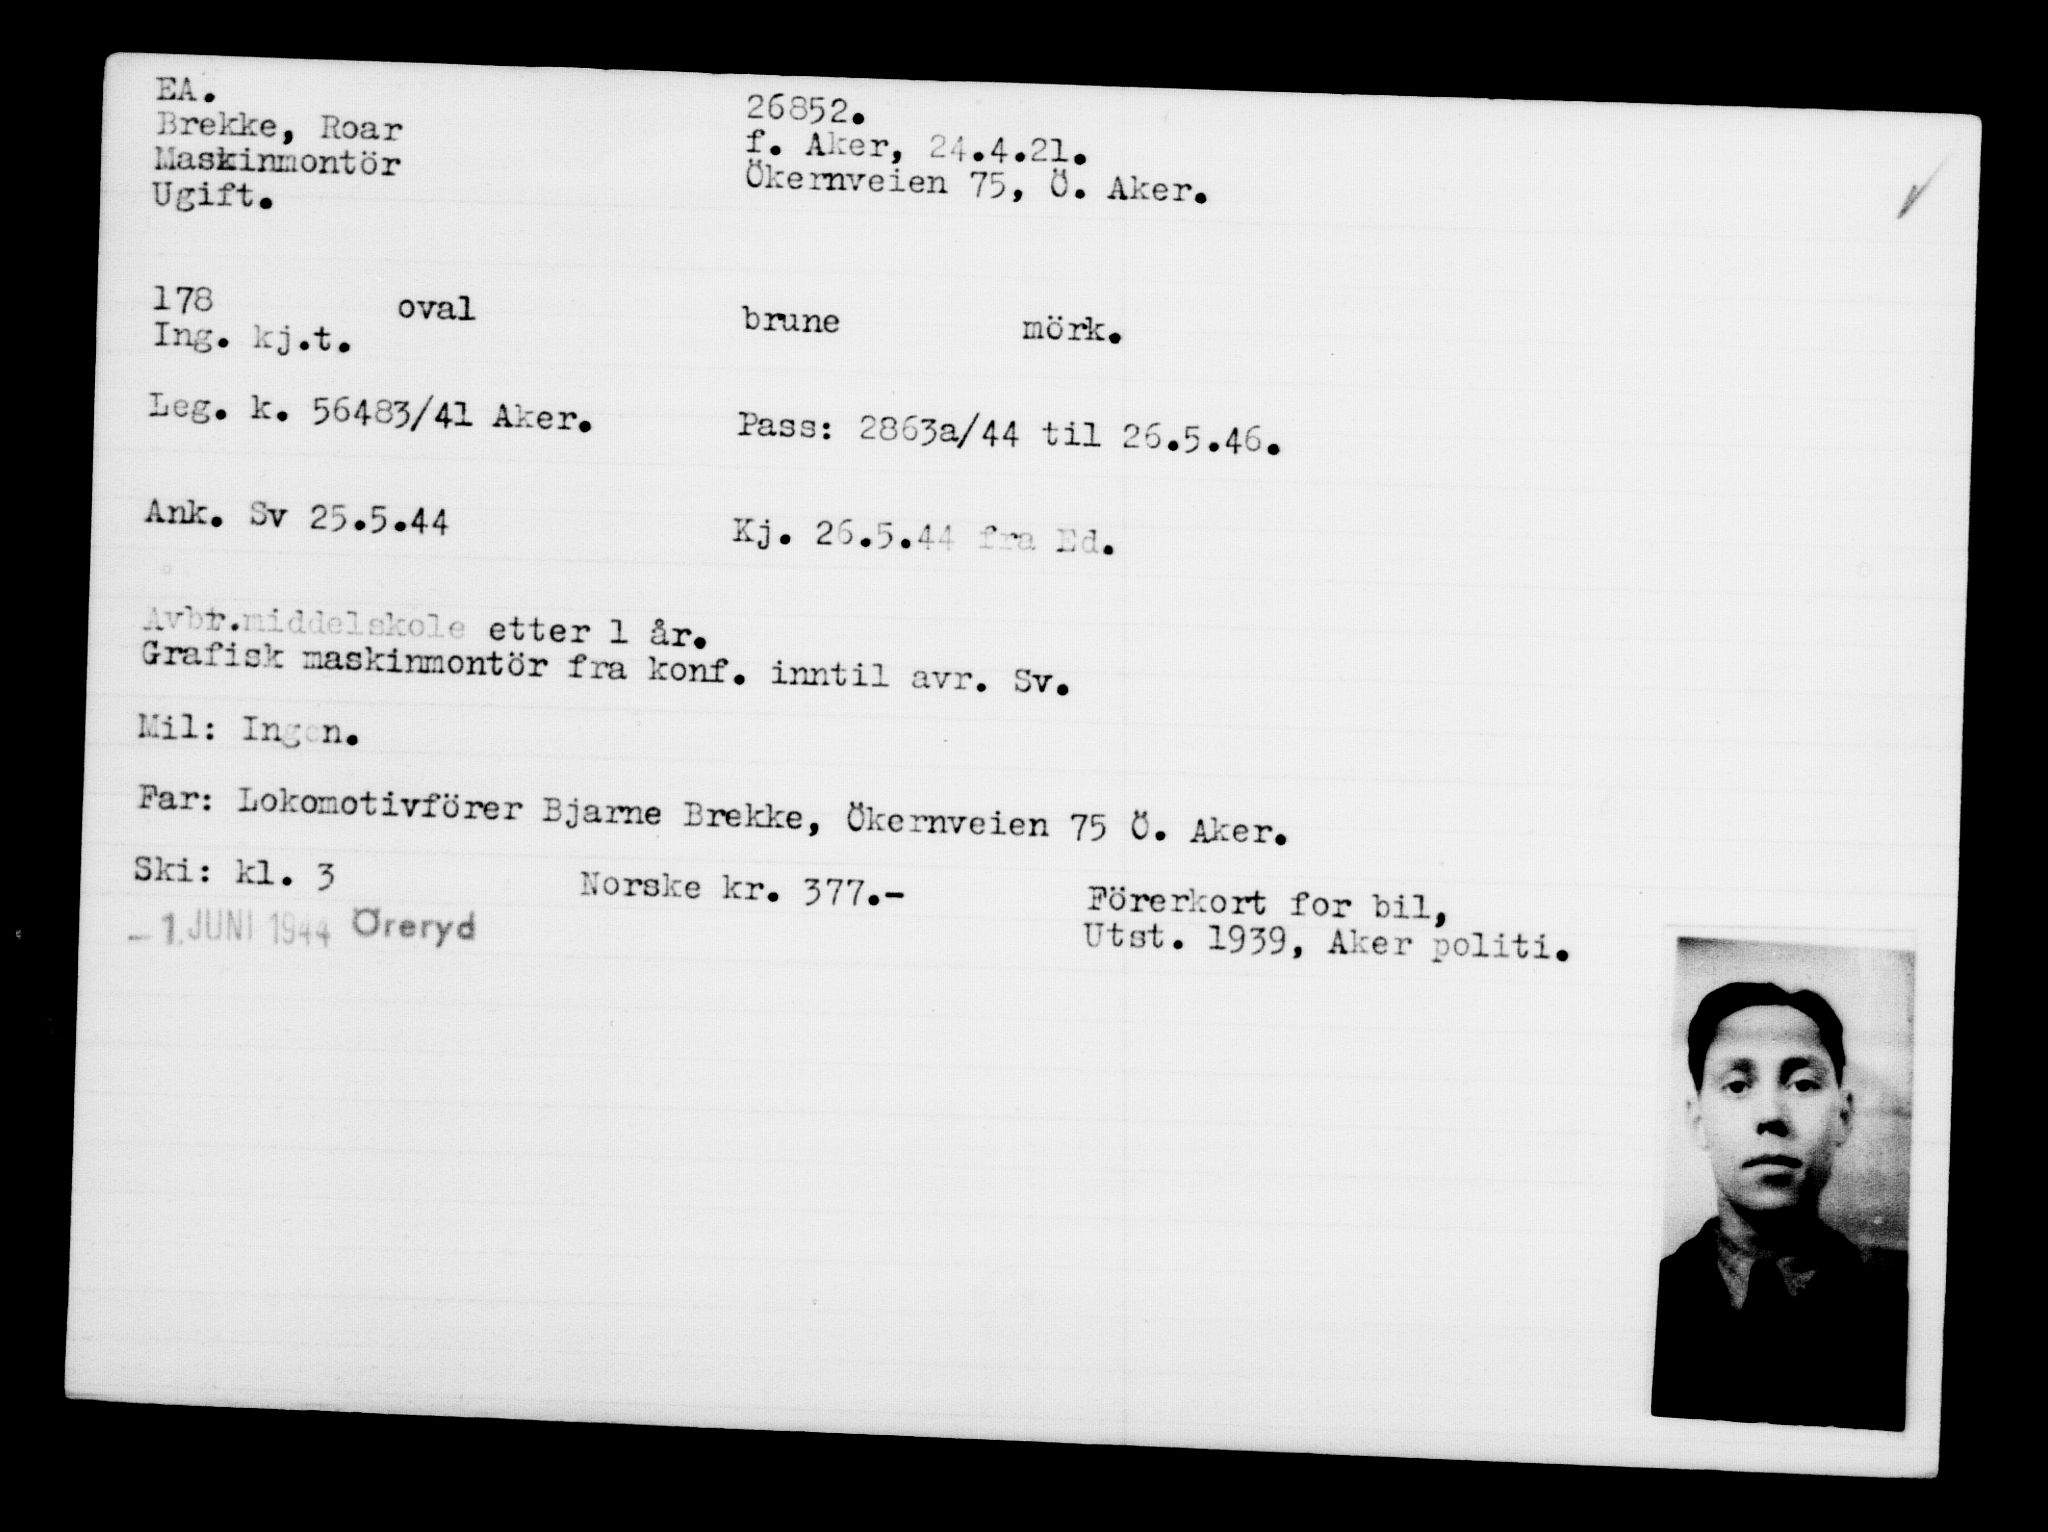 EA.
26852.
Brekke, Roar
f. Aker, 24.4.21.
Maskinmontör
Ökernveien 75, Ö. Aker.
Ugift.
178 oval brune mörk.
Ing. kj.t.
Leg. k. 56483/41 Aker. Pass: 2863a/44 til 26.5.46.
Ank. Sv 25.5.44 Kj. 26.5.44 fra Ed.
Avbr.middelskole etter 1 år.
Grafisk maskinmontör fra konf. inntil avr. Sv.
Mil: Ingen.
Far: Lokomotivförer Bjarne Brekke, Ökernveien 75 Ö. Aker.
Ski: kl. 3 Norske kr. 377.- Förerkort for bil,
Utst. 1939, Aker politi.
- 1. JUNI 1944 Öreryd